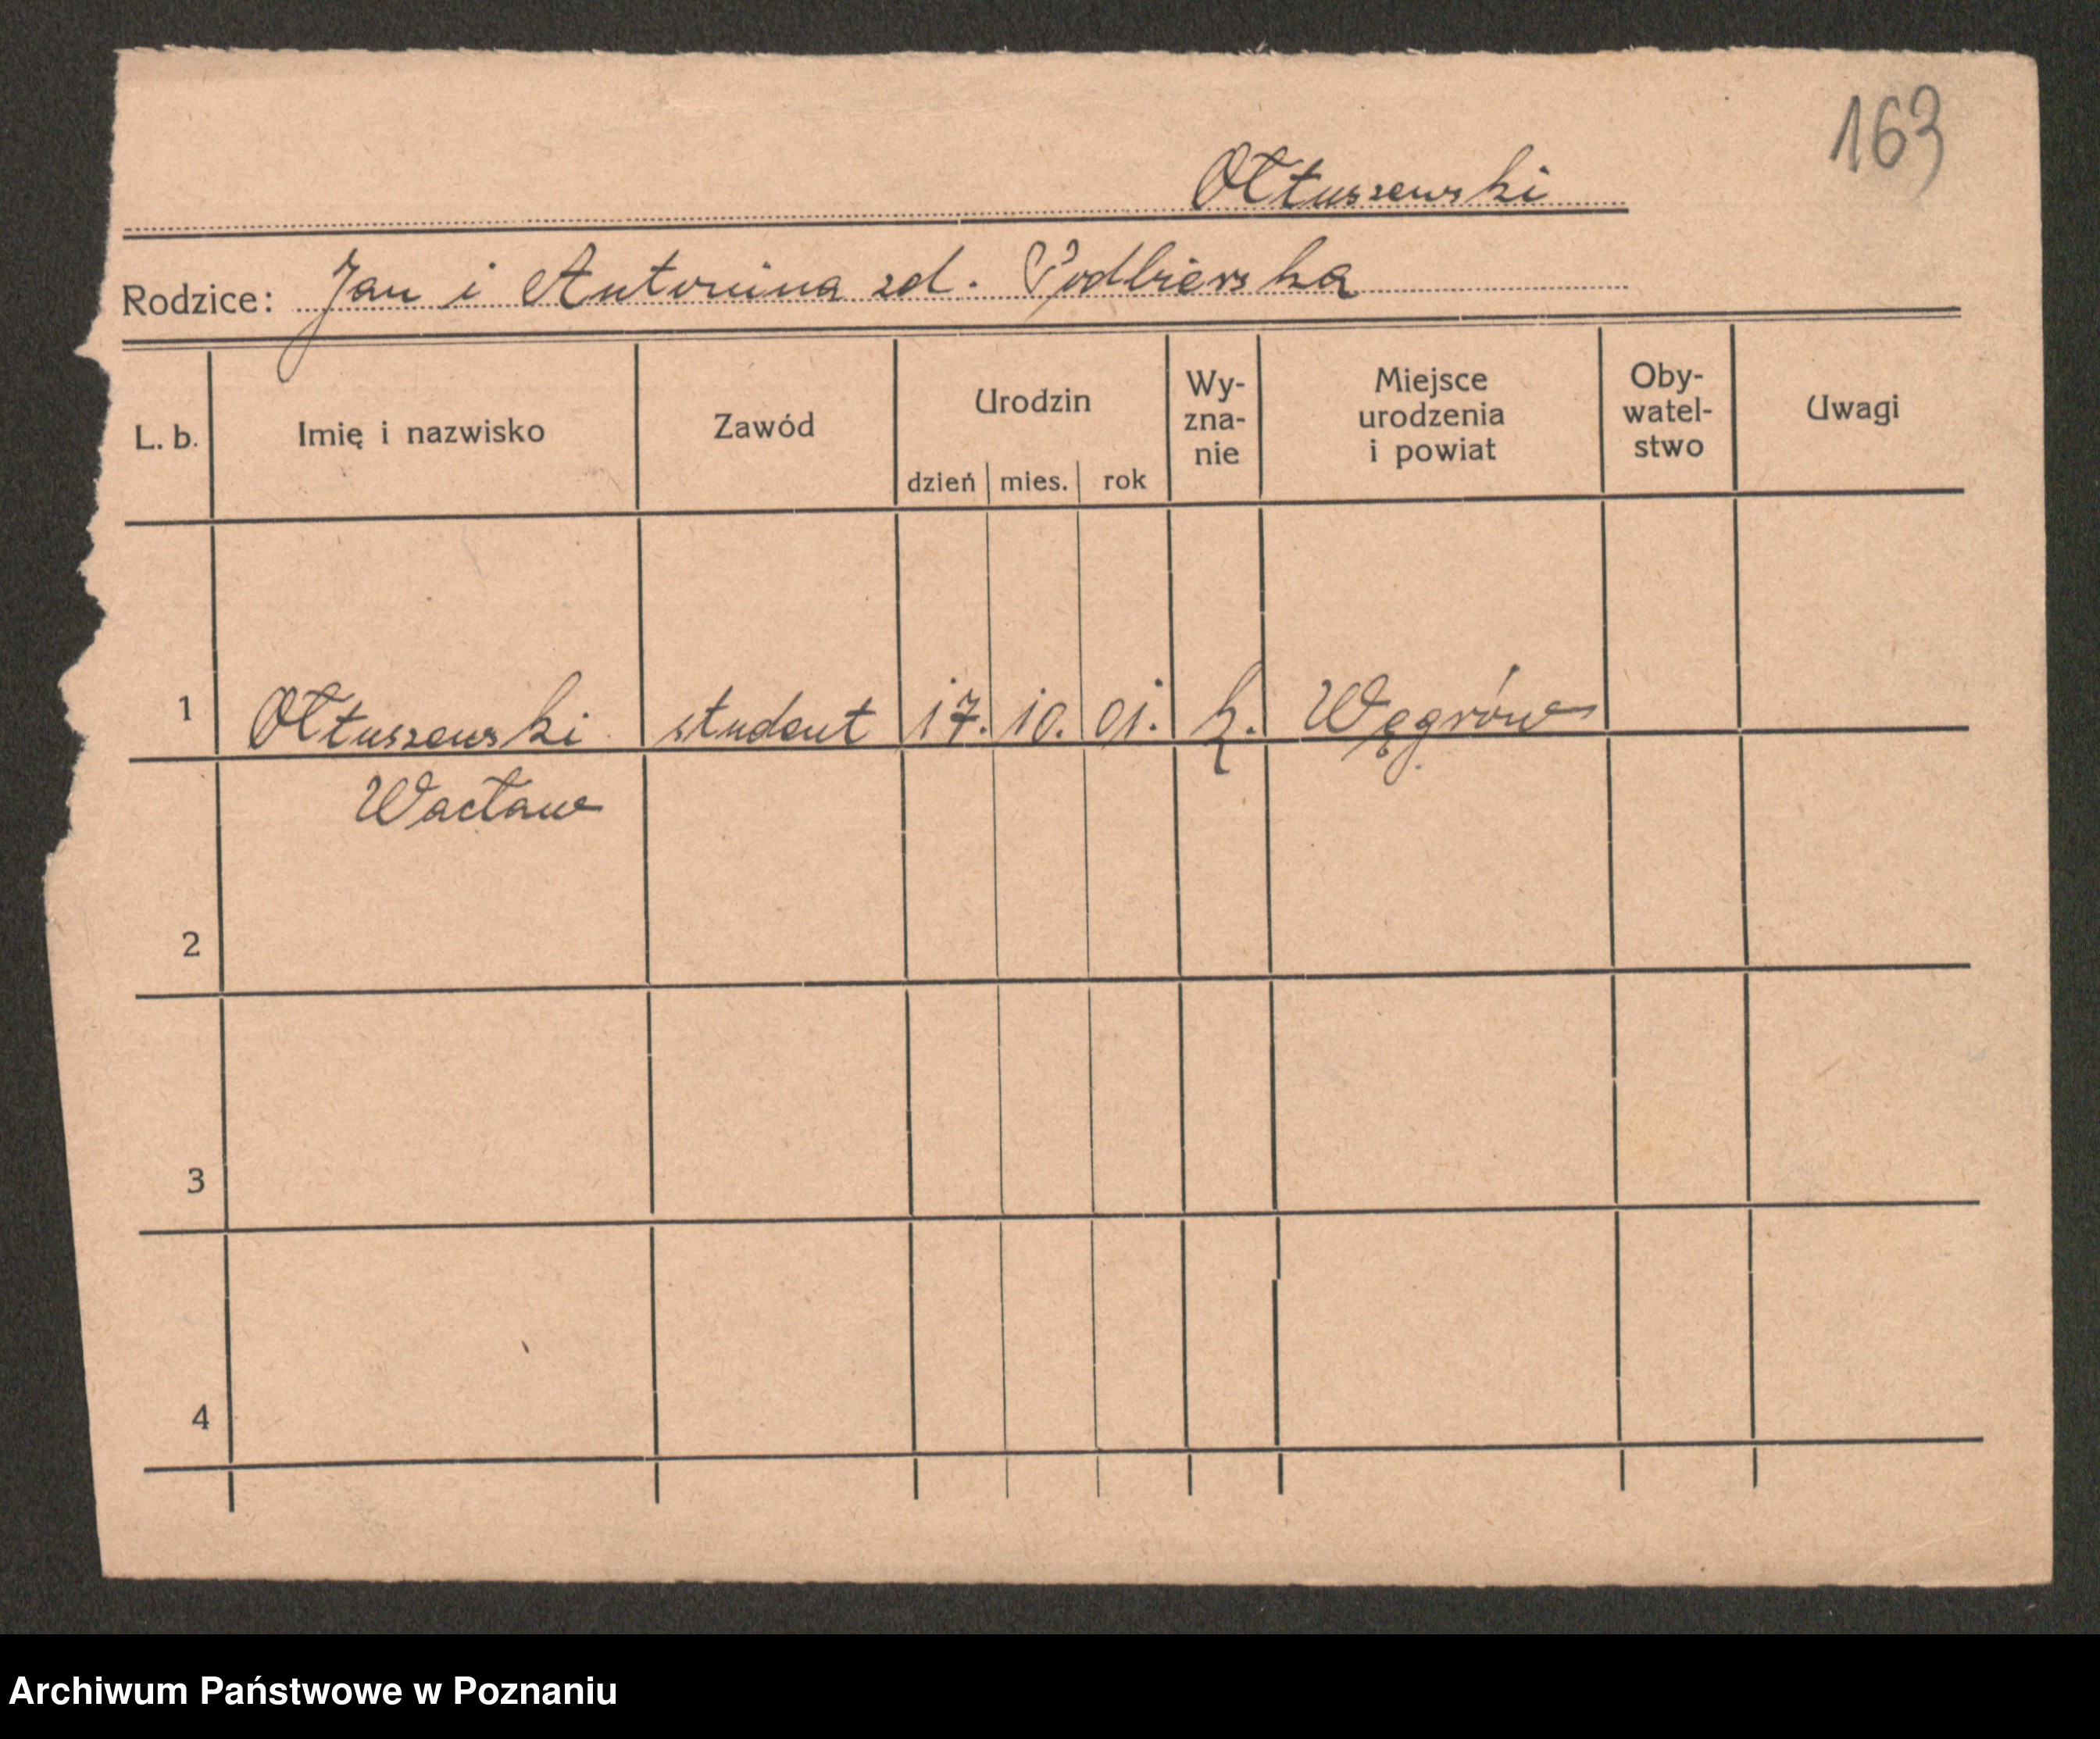 163
Ołtuszewski
Rodzice: Jan i Antonina zd. Podbierska
L. b.
Imię i nazwisko
Zawód
Urodzin
dzień mies. rok
Wy-
zna-
nie
Miejsce
urodzenia
i powiat
Oby-
watel-
stwo
Uwagi
1 Ołtuszewski student 17. 10. 01. k. Węgrów
Wacław
2
3
4
Archiwum Państwowe w Poznaniu